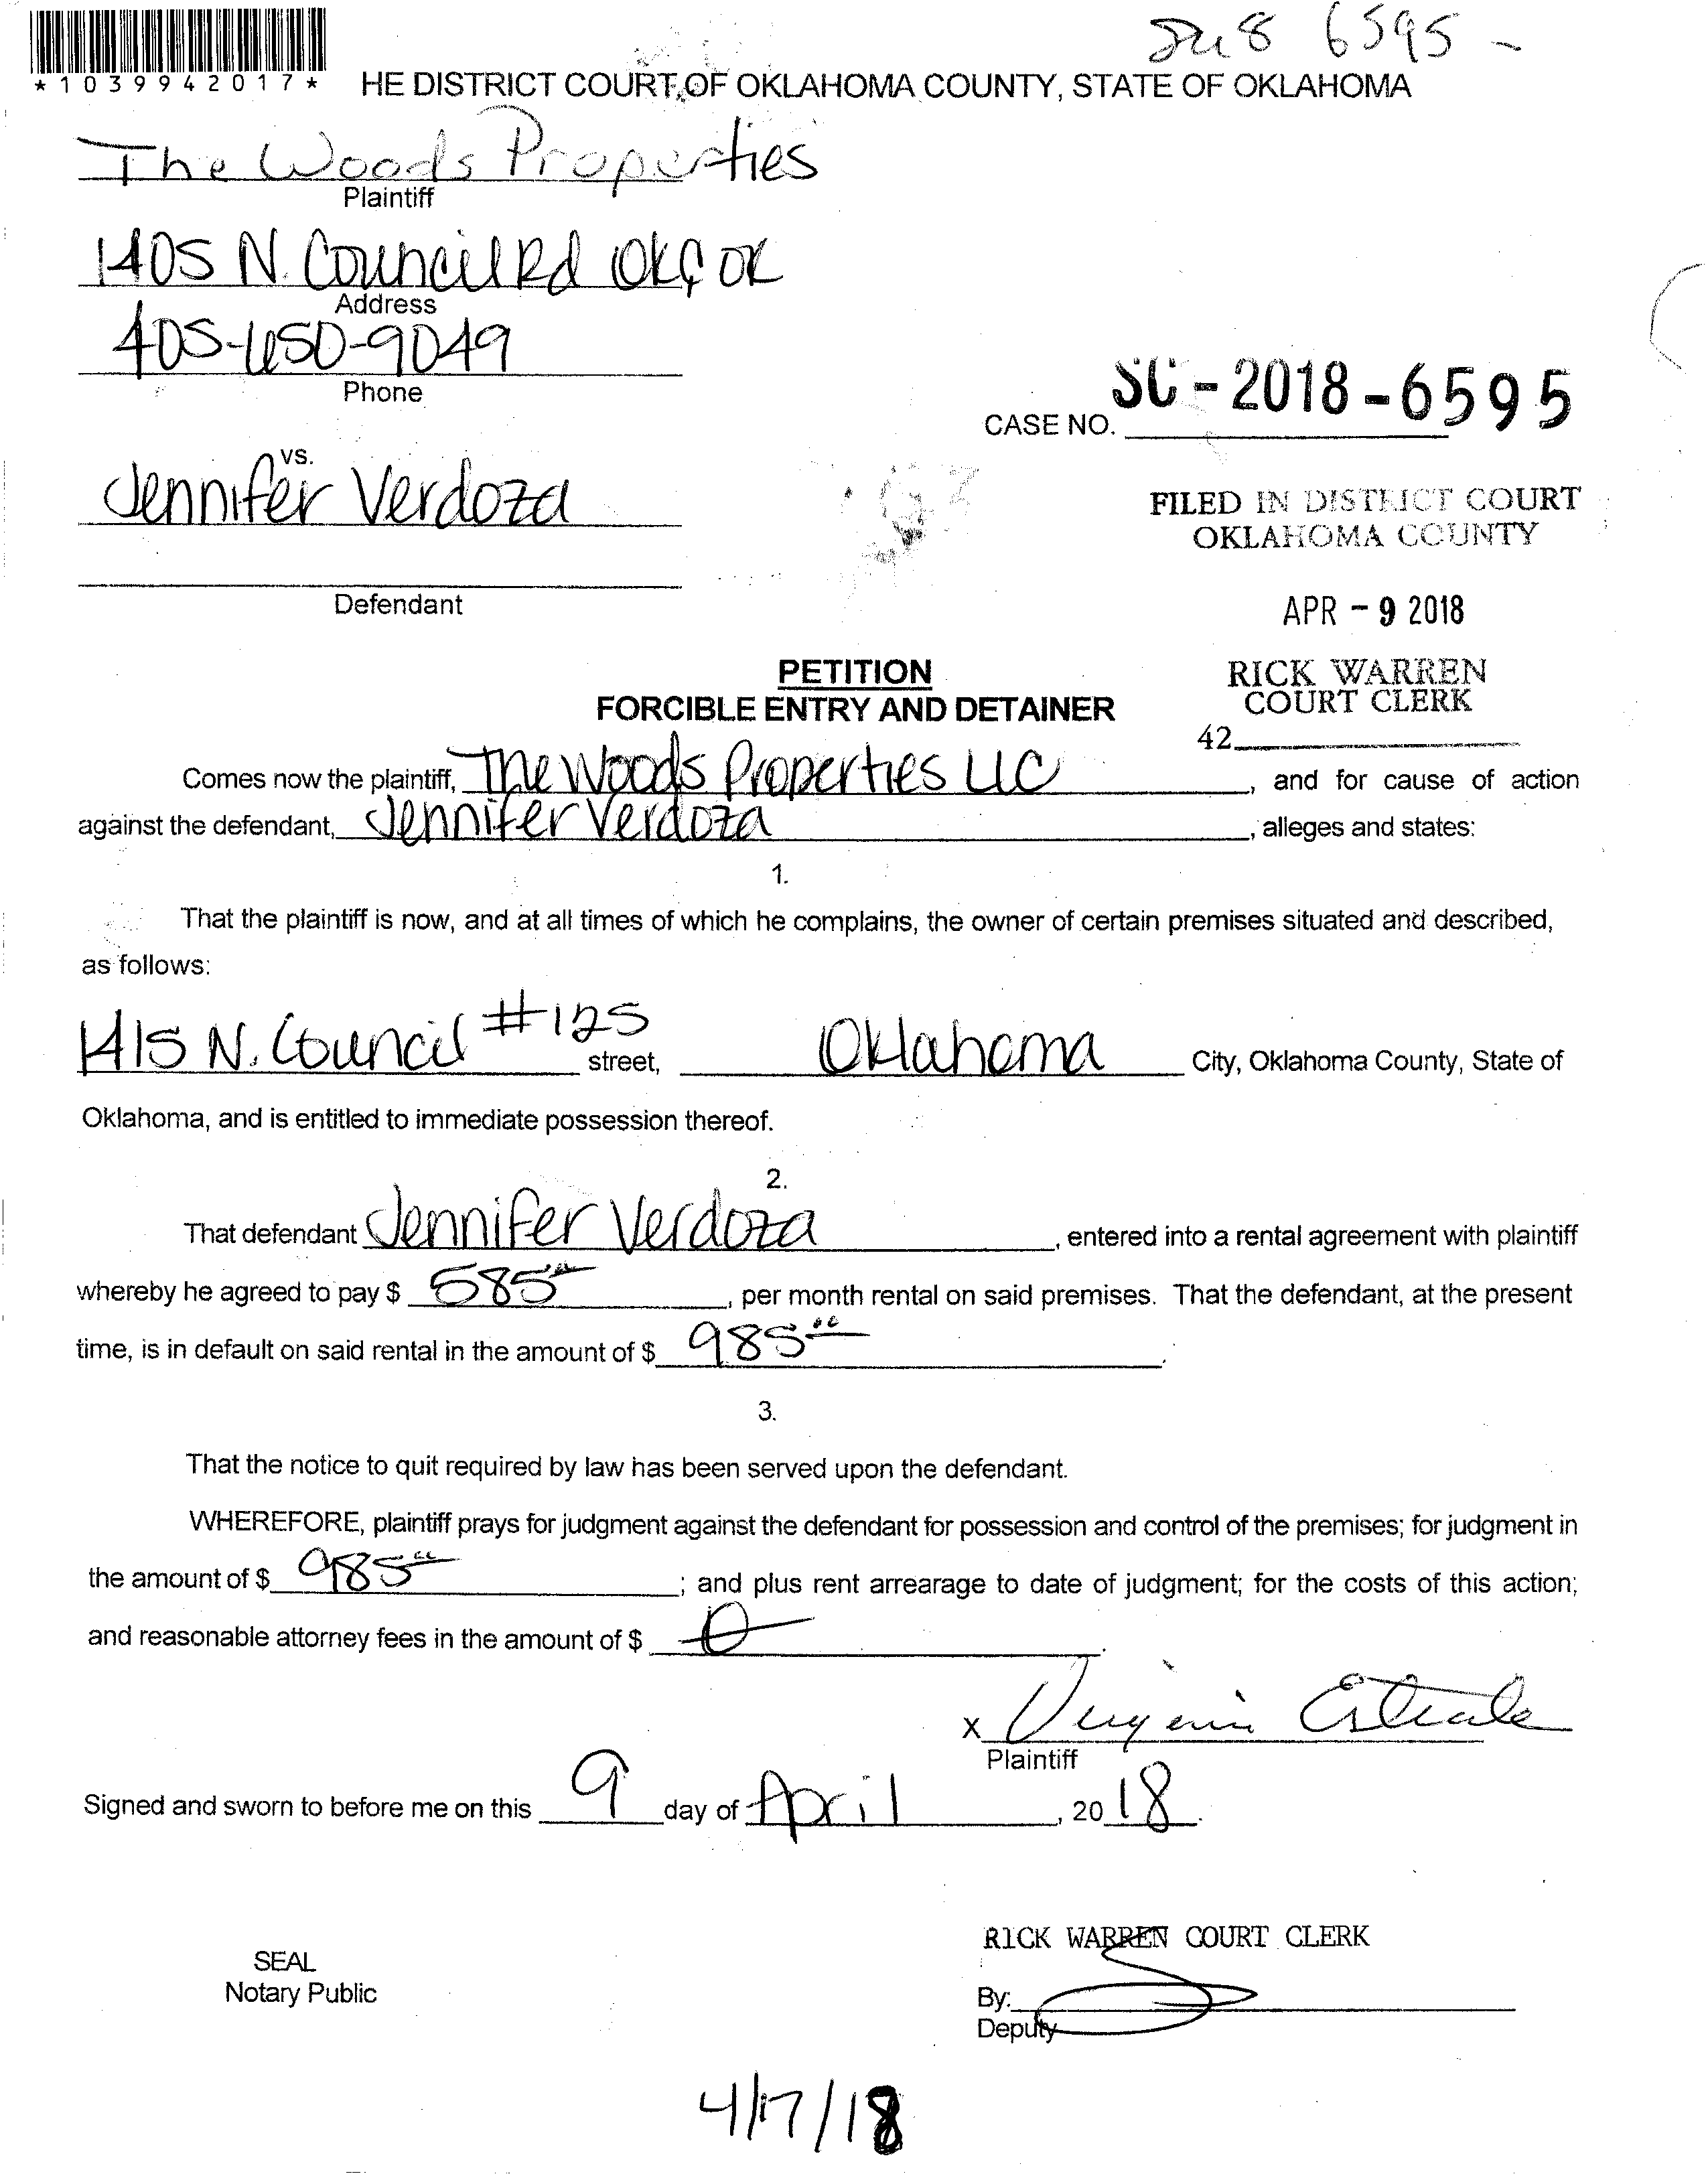 6595 -
*1039942017*
HE DISTRICT COURT OF OKLAHOMA COUNTY, STATE OF OKLAHOMA
The Woods Properties
Plaintiff
1405 N. Council Rd OKC OK
Address
405-650-9049
Phone
SC-2018-6595
CASE NO.
vs.
Jennifer Verdoza
FILED IN DISTRICT COURT
OKLAHOMA COUNTY
Defendant
APR - 9 2018
PETITION
FORCIBLE ENTRY AND DETAINER
RICK WARREN
COURT CLERK
42
Comes now the plaintiff, The Woods Properties LLC, and for cause of action
against the defendant, Jennifer Verdoza, alleges and states:
1.
That the plaintiff is now, and at all times of which he complains, the owner of certain premises situated and described,
as follows:
1415 N. Council #125 street, Oklahoma City, Oklahoma County, State of
Oklahoma, and is entitled to immediate possession thereof.
2.
That defendant Jennifer Verdoza, entered into a rental agreement with plaintiff
whereby he agreed to pay $ 585 00, per month rental on said premises. That the defendant, at the present
time, is in default on said rental in the amount of $ 985 00.
3.
That the notice to quit required by law has been served upon the defendant.
WHEREFORE, plaintiff prays for judgment against the defendant for possession and control of the premises; for judgment in
the amount of $ 985 00; and plus rent arrearage to date of judgment; for the costs of this action;
and reasonable attorney fees in the amount of $ 0.
X
Plaintiff
Signed and sworn to before me on this 9 day of April, 2018.
RICK WARREN COURT CLERK
SEAL
Notary Public
By:
Deputy
4/17/18